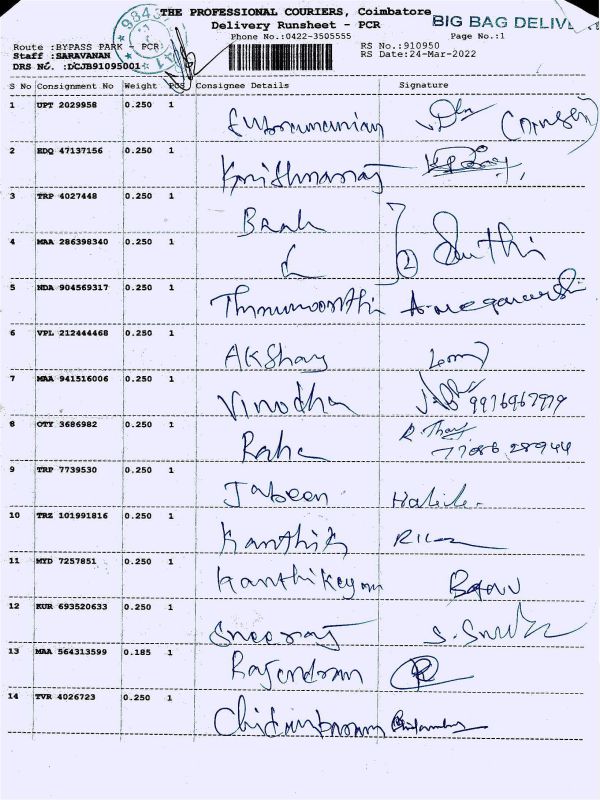 THE PROFESSIONAL COURIERS, Coimbatore
Delivery Runsheet - PCR
BIG BAG DELIV
Phone No.:0422-3505555 Page No.:1
Route :BYPASS PARK - PCR RS No.:910950
Staff :SARAVANAN RS Date:24-Mar-2022
DRS No. :DCJB91095001
S No Consignment No Weight PCS Consignee Details Signature
1 UPT 2029958 0.250 1 Subramanian
2 EDQ 47137156 0.250 1 Krishnaraj
3 TRP 4027448 0.250 1 Bank
4 MAA 286398340 0.250 1 (2) Suthi
5 NDA 904569317 0.250 1 Thirumoorthi
6 VPL 212444468 0.250 1 Akshay
7 MAA 941516006 0.250 1 Vinodha 9976967979
8 OTY 3686982 0.250 1
9 TRP 7739530 0.250 1 Jabeen
10 TRZ 101991816 0.250 1 Karthik
11 MYD 7257851 0.250 1 Karthikeyan
12 KUR 693520633 0.250 1
13 MAA 564313599 0.185 1 Rajendran R
14 TVR 4026723 0.250 1 Chidambaram